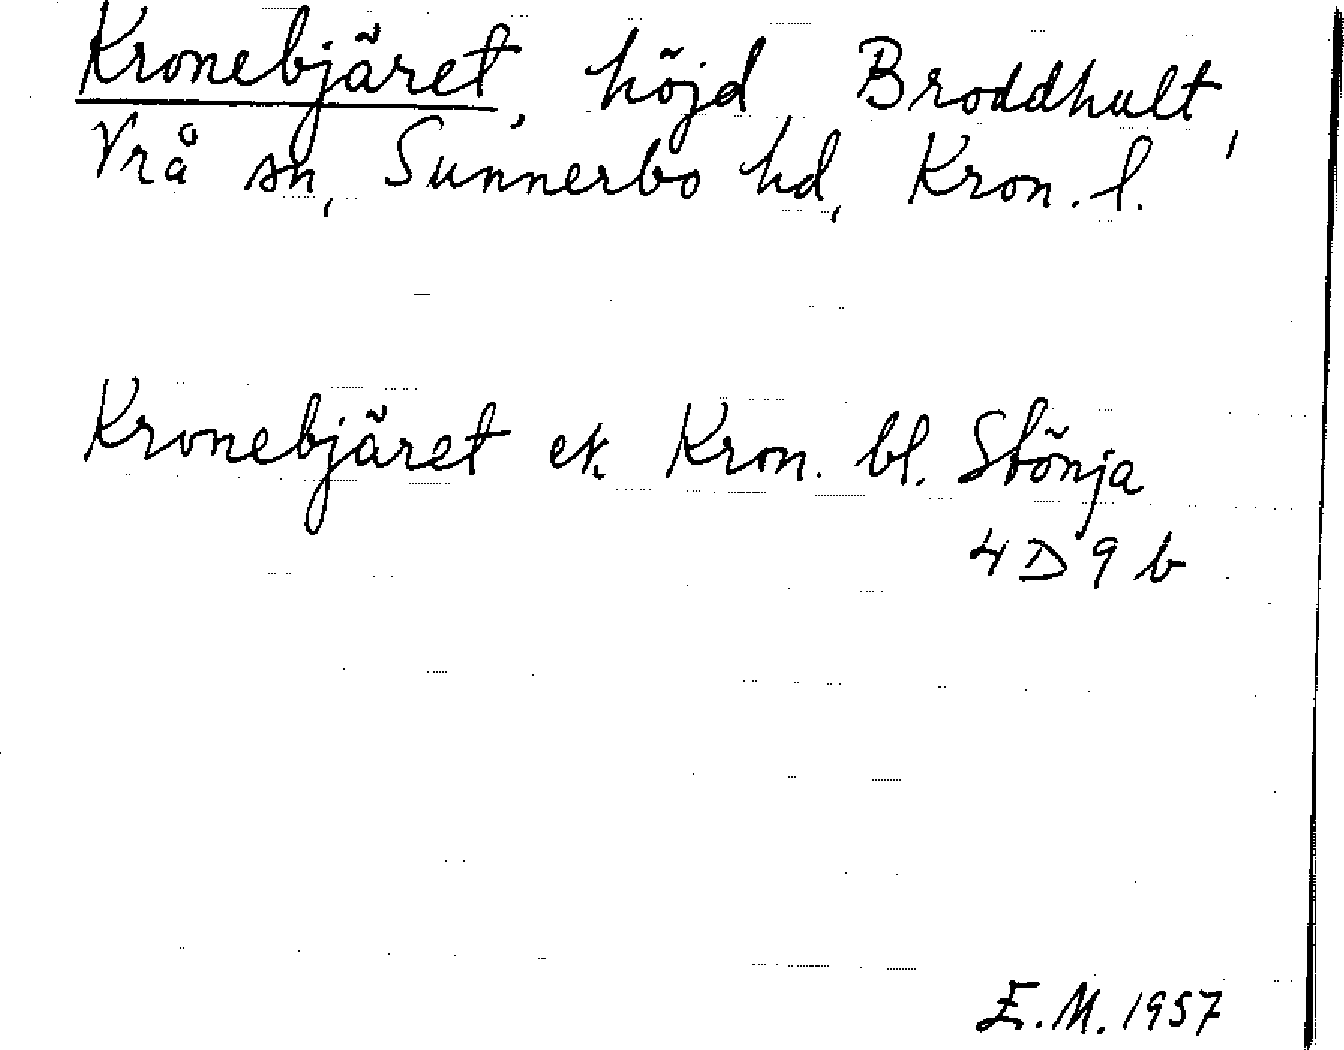 Kronebjäret, höjd, Broddhult,
Vrå sn, Sunnerbo hd, Kron. l.
Kronebjäret ek Kron. bl. Stönja
4 D 9 b
E.M. 1957